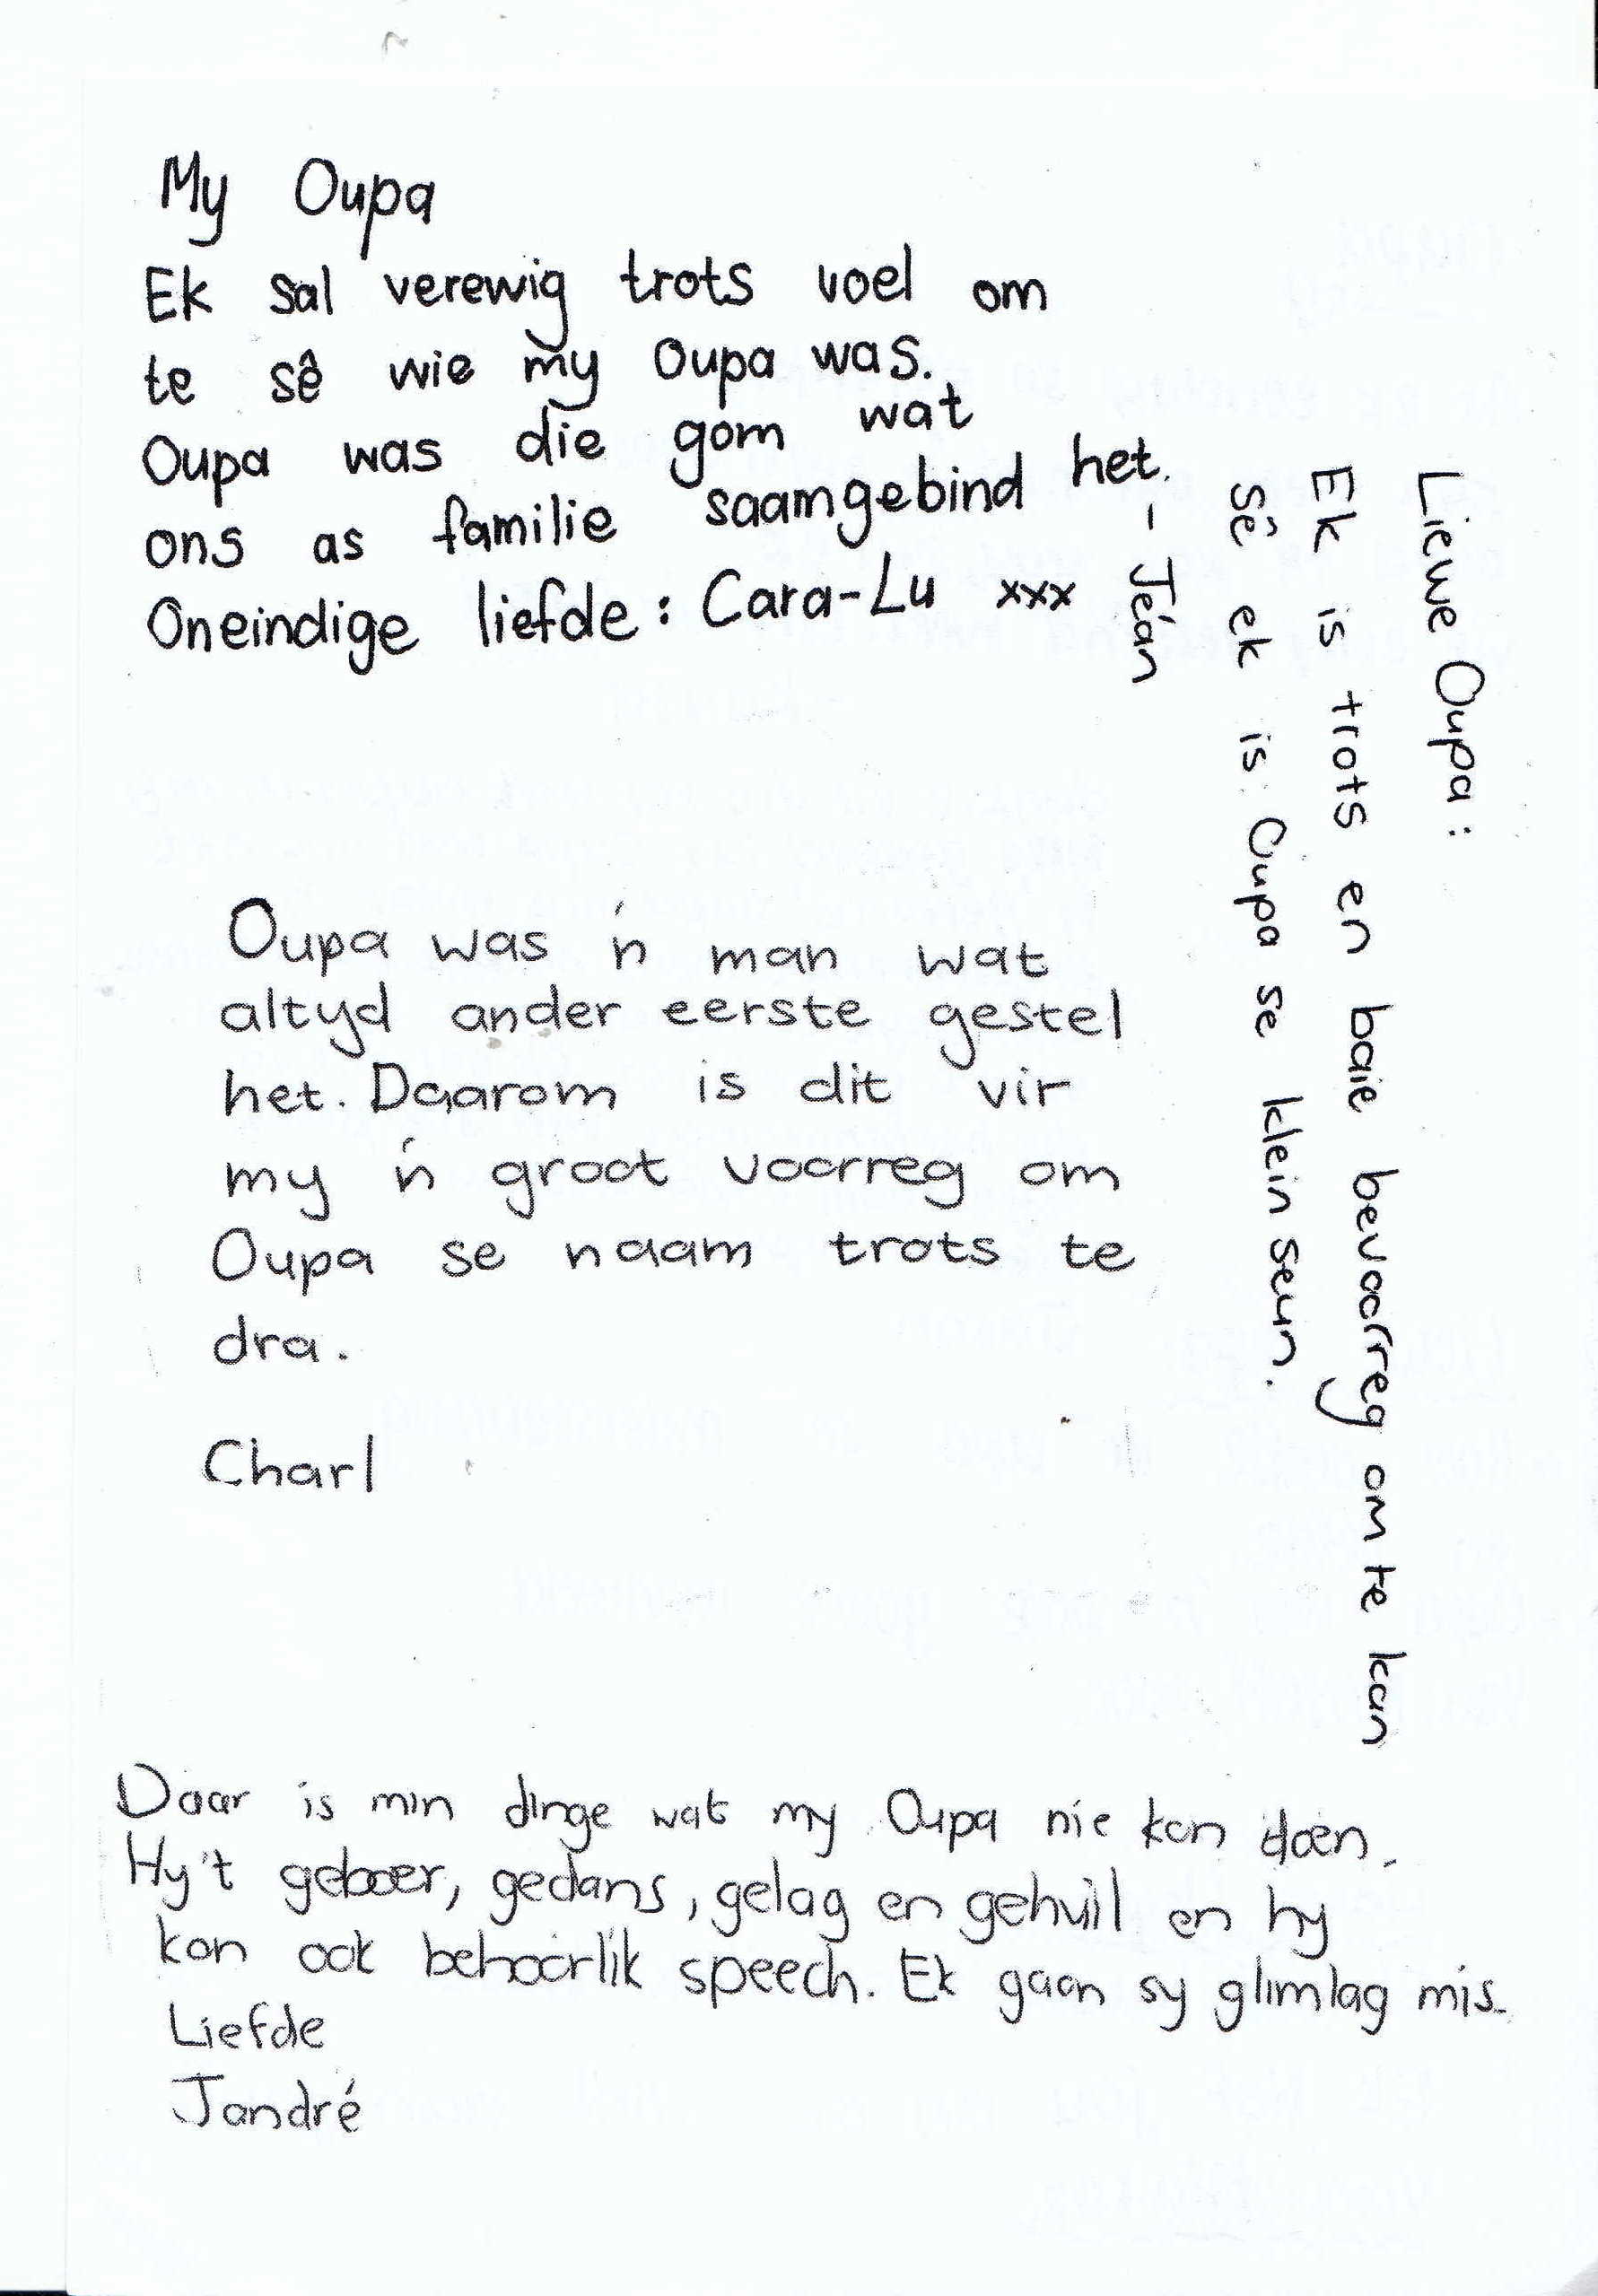 My Oupa
Ek sal verewig trots voel om
te sê wie my Oupa was.
Oupa was die gom wat
ons as familie saamgebind het.
Oneindige liefde: Cara-Lu xxx
Liewe Oupa:
Ek is trots en baie bevoorreg om te kan
sê ek is Oupa se klein seun.
- Jeán
Oupa was 'n man wat
altyd ander eerste gestel
het. Daarom is dit vir
my 'n groot voorreg om
Oupa se naam trots te
dra.
Charl
Daar is min dinge wat my Oupa nie kon doen.
Hy't geboer, gedans, gelag en gehuil en hy
kon ook behoorlik speech. Ek gaan sy glimlag mis.
Liefde
Jandré